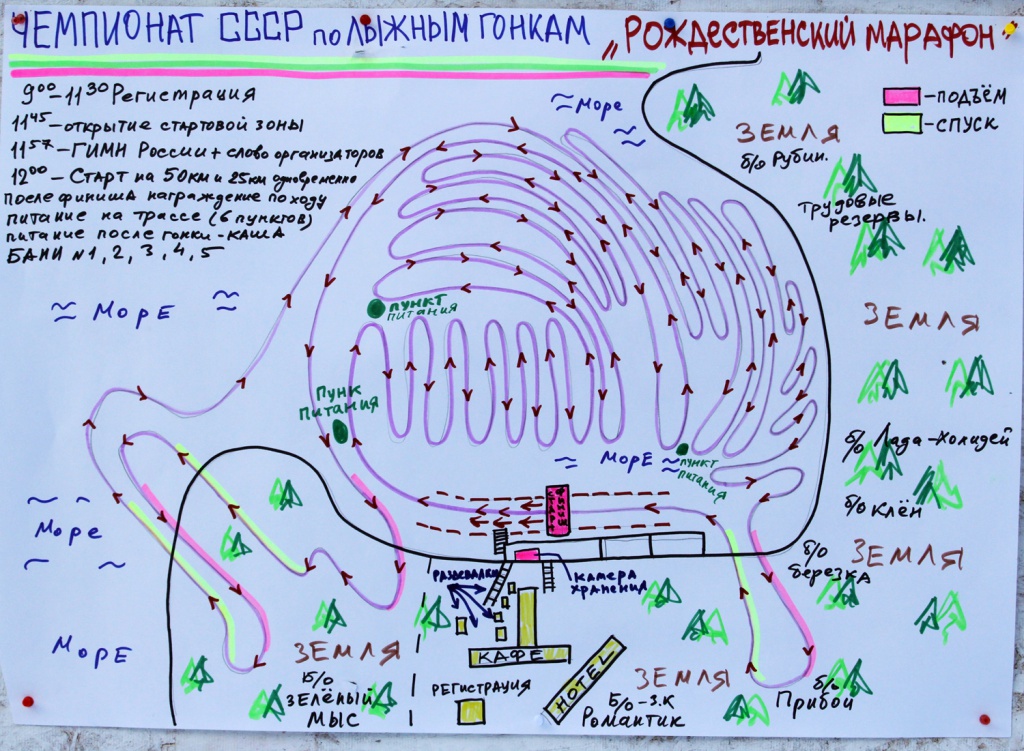 ЧЕМПИОНАТ СССР по ЛЫЖНЫМ ГОНКАМ „РОЖДЕСТВЕНСКИЙ МАРАФОН"
9⁰⁰–11³⁰ Регистрация
11⁴⁵ – открытие стартовой зоны
11⁵⁷ – ГИМН России + слово организаторов
12⁰⁰ – Старт на 50км и 25км одновременно
после финиша награждение по ходу
питание на трассе (6 пунктов)
питание после гонки – каша
БАНИ №1, 2, 3, 4, 5
– подъём
– спуск
Море
ЗЕМЛЯ
б/о Рубин.
Трудовые
резервы.
Море
ЗЕМЛЯ
пункт
питания
Пунк
питания
Море
пункт
питания
б/о Лада-Холидей
б/о Клён
Море
СТАРТ
ФИНИШ
б/о
березка
ЗЕМЛЯ
раздевалки
камера
хранения
Море
ЗЕМЛЯ
б/о
Зелёный
мыс
КАФЕ
РЕГИСТРАЦИЯ
HOTEL
ЗЕМЛЯ
Б/о-З.К
Романтик
б/о
Прибой